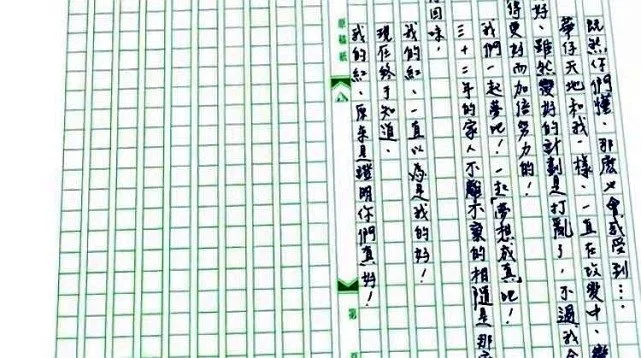 既然你們懂，那麼也會感受到…
華仔天地和我一樣，一直在改變中，變
好，雖然變好的計劃是打亂了，不過我
得更好而加倍努力的！
我們一起夢吧！一起「夢想成真」吧！
三十二年的家人不離不棄的相隨是那
得回味，
我的紅，一直以為是我的好！
現在終于知道，
我的紅，原來是證明你們真好！
原稿紙
第